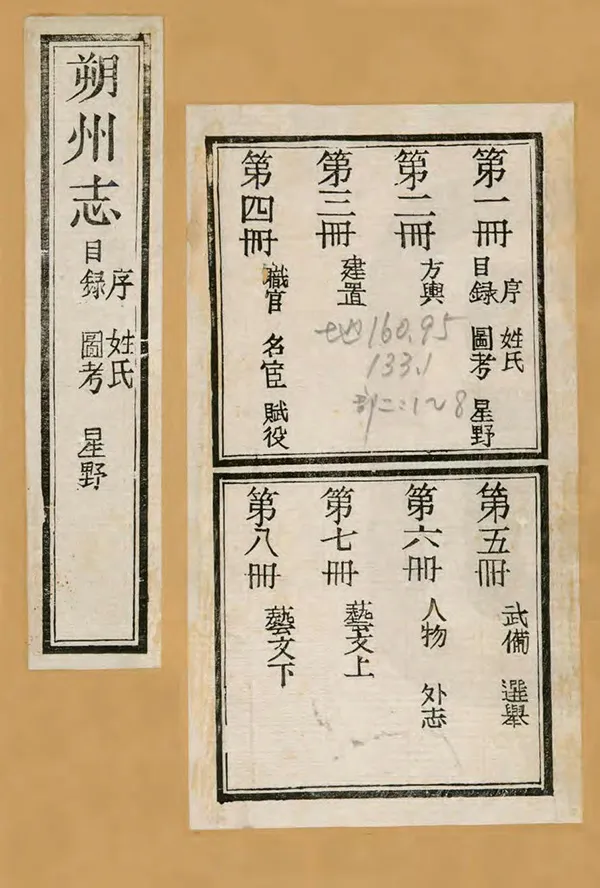 朔州志
序 姓氏
目録 圖考 星野
第一冊
序 姓氏
目録 圖考 星野
第二冊 方輿
第三冊 建置
第四冊 職官 名宦 賦役
第五冊 武備 選舉
第六冊 人物 外志
第七冊 藝文上
第八冊 藝文下
地160.95
133.1
二:1~8